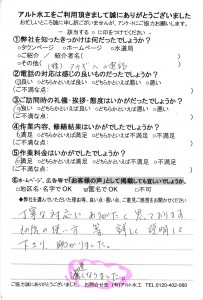 アルト水工をご利用頂きまして誠にありがとうございました
おだしい所誠に申し訳ございませんが、アンケートにご協力お願いします。
該当する □ に印をつけてください。
①弊社を知ったきっかけは何だったでしょうか?
□タウンページ □ホームページ □水道局
□ご紹介 / ご紹介者名( )
□その他(
②電話の対応は感じの良いものだったでしょうか?
□良い □どちらかといえば良い □どちらかといえば悪い □悪い
③ご訪問時の礼儀・挨拶・態度はいかがだったでしょうか?
□良い □どちらかといえば良い □どちらかといえば悪い □悪い
④作業内容、修繕結果はいかがでしたでしょうか?
□満足 □どちらかといえば満足 □どちらかといえば不満足 □不満足
(不満足な点: )
⑤作業料金はいかがでしたでしょうか?
□満足 □どちらかといえば満足 □どちらかといえば不満足 □不満足
(不満足な点: )
⑥ホームページ、広告等で「お客様の声」として掲載しても宜しいでしょうか。
□地区名・名字でOK □匿名でOK □不可
◆弊社を選んでいただいた理由等、良い点・悪い点、ご意見ご感想をお聞かせください
丁寧な対応にありがたく思っております
切傷の使い方 等 詳しく説明して
下さり 助かりました。
遅くなりました。
ご協力誠にありがとうございました。 お問合せ先 (有)アルト水工 TEL:0120-402-080